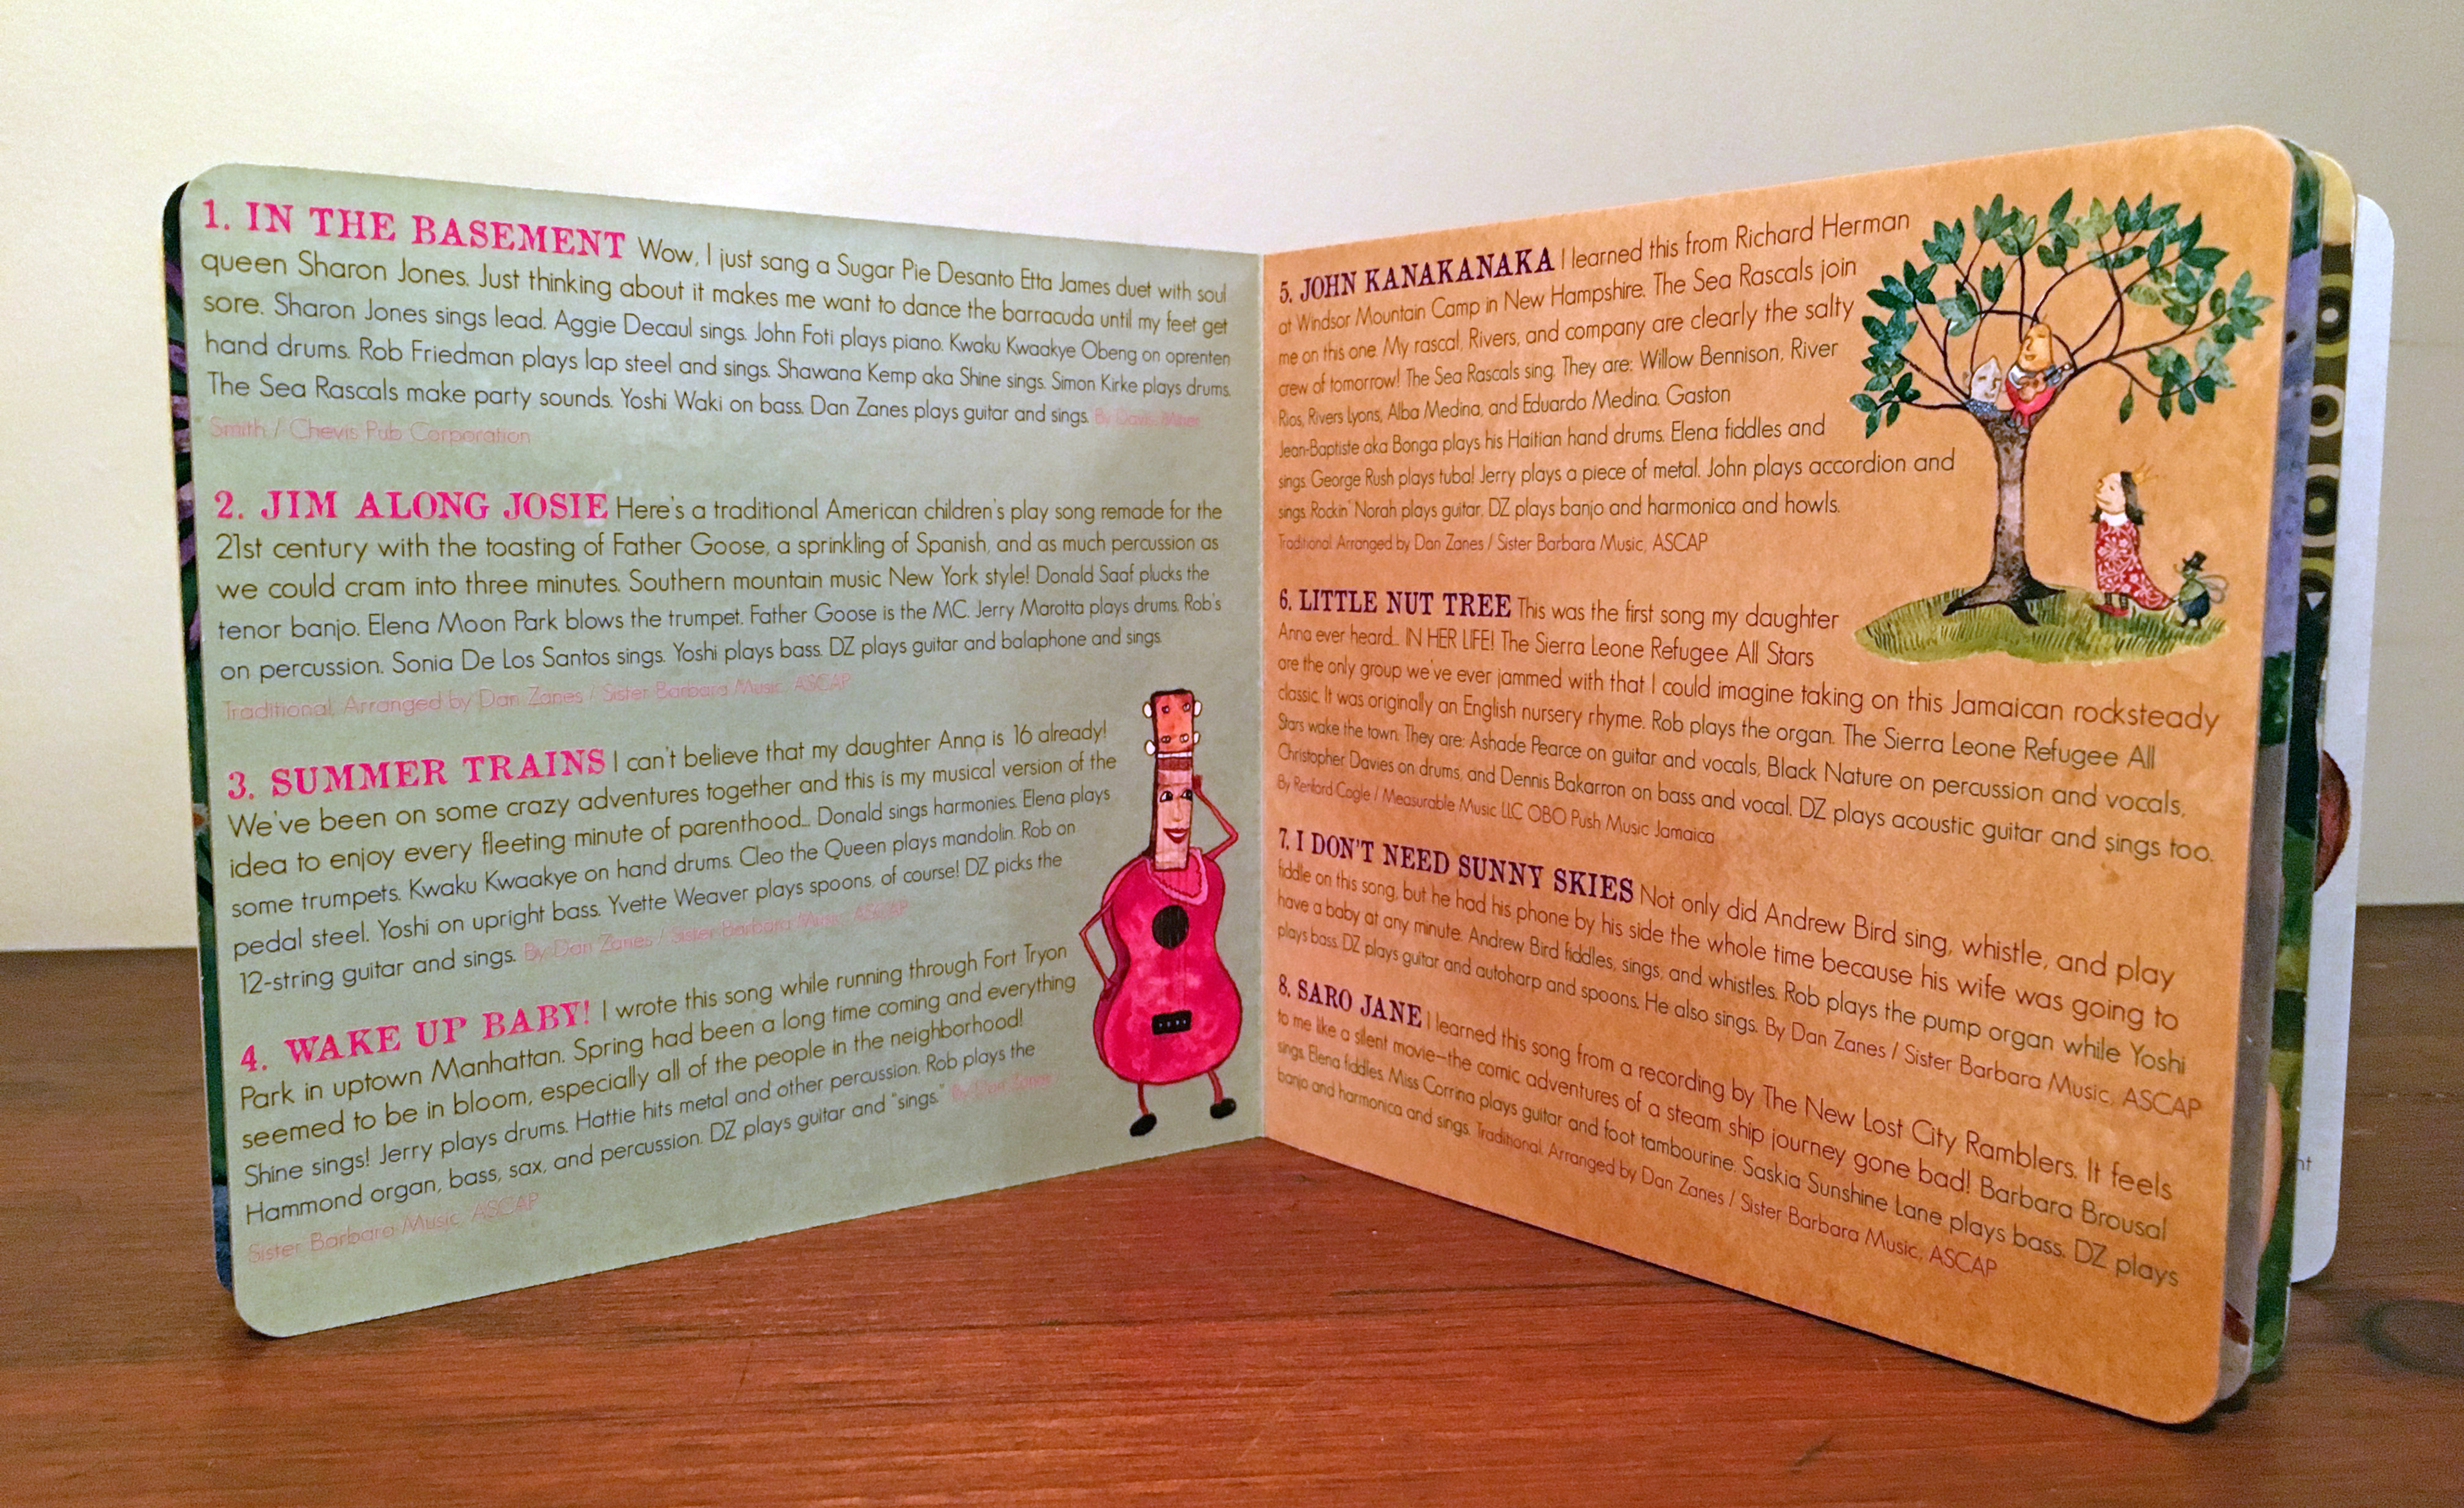 1. IN THE BASEMENT Wow, I just sang a Sugar Pie Desanto Etta James duet with soul
queen Sharon Jones. Just thinking about it makes me want to dance the barracuda until my feet get
sore. Sharon Jones sings lead. Aggie Decaul sings. John Foti plays piano. Kwaku Kwaakye Obeng on oprenten
hand drums. Rob Friedman plays lap steel and sings. Shawana Kemp aka Shine sings. Simon Kirke plays drums.
The Sea Rascals make party sounds. Yoshi Waki on bass. Dan Zanes plays guitar and sings. By Davis, Miner
Smith / Chevis Pub Corporation
2. JIM ALONG JOSIE Here's a traditional American children's play song remade for the
21st century with the toasting of Father Goose, a sprinkling of Spanish, and as much percussion as
we could cram into three minutes. Southern mountain music New York style! Donald Saaf plucks the
tenor banjo. Elena Moon Park blows the trumpet. Father Goose is the MC. Jerry Marotta plays drums. Rob's
on percussion. Sonia De Los Santos sings. Yoshi plays bass. DZ plays guitar and balaphone and sings.
Traditional, Arranged by Dan Zanes / Sister Barbara Music, ASCAP
3. SUMMER TRAINS I can't believe that my daughter Anna is 16 already!
We've been on some crazy adventures together and this is my musical version of the
idea to enjoy every fleeting minute of parenthood... Donald sings harmonies. Elena plays
some trumpets. Kwaku Kwaakye on hand drums. Cleo the Queen plays mandolin. Rob on
pedal steel. Yoshi on upright bass. Yvette Weaver plays spoons, of course! DZ picks the
12-string guitar and sings. By Dan Zanes / Sister Barbara Music, ASCAP
4. WAKE UP BABY! I wrote this song while running through Fort Tryon
Park in uptown Manhattan. Spring had been a long time coming and everything
seemed to be in bloom, especially all of the people in the neighborhood!
Shine sings! Jerry plays drums. Hattie hits metal and other percussion. Rob plays the
Hammond organ, bass, sax, and percussion. DZ plays guitar and "sings." By Dan Zanes
Sister Barbara Music, ASCAP
5. JOHN KANAKANAKA I learned this from Richard Herman
at Windsor Mountain Camp in New Hampshire. The Sea Rascals join
me on this one. My rascal, Rivers, and company are clearly the salty
crew of tomorrow! The Sea Rascals sing. They are: Willow Bennison, River
Rios, Rivers Lyons, Alba Medina, and Eduardo Medina. Gaston
Jean-Baptiste aka Bonga plays his Haitian hand drums. Elena fiddles and
sings. George Rush plays tuba! Jerry plays a piece of metal. John plays accordion and
sings. Rockin' Norah plays guitar. DZ plays banjo and harmonica and howls.
Traditional. Arranged by Dan Zanes / Sister Barbara Music, ASCAP
6. LITTLE NUT TREE This was the first song my daughter
Anna ever heard... IN HER LIFE! The Sierra Leone Refugee All Stars
are the only group we've ever jammed with that I could imagine taking on this Jamaican rocksteady
classic. It was originally an English nursery rhyme. Rob plays the organ. The Sierra Leone Refugee All
Stars wake the town. They are: Ashade Pearce on guitar and vocals, Black Nature on percussion and vocals,
Christopher Davies on drums, and Dennis Bakarron on bass and vocal. DZ plays acoustic guitar and sings too.
By Renford Cogle / Measurable Music LLC OBO Push Music Jamaica
7. I DON'T NEED SUNNY SKIES Not only did Andrew Bird sing, whistle, and play
fiddle on this song, but he had his phone by his side the whole time because his wife was going to
have a baby at any minute. Andrew Bird fiddles, sings, and whistles. Rob plays the pump organ while Yoshi
plays bass. DZ plays guitar and autoharp and spoons. He also sings. By Dan Zanes / Sister Barbara Music, ASCAP
8. SARO JANE I learned this song from a recording by The New Lost City Ramblers. It feels
to me like a silent movie—the comic adventures of a steam ship journey gone bad! Barbara Brousal
sings. Elena fiddles. Miss Corrina plays guitar and foot tambourine. Saskia Sunshine Lane plays bass. DZ plays
banjo and harmonica and sings. Traditional. Arranged by Dan Zanes / Sister Barbara Music, ASCAP